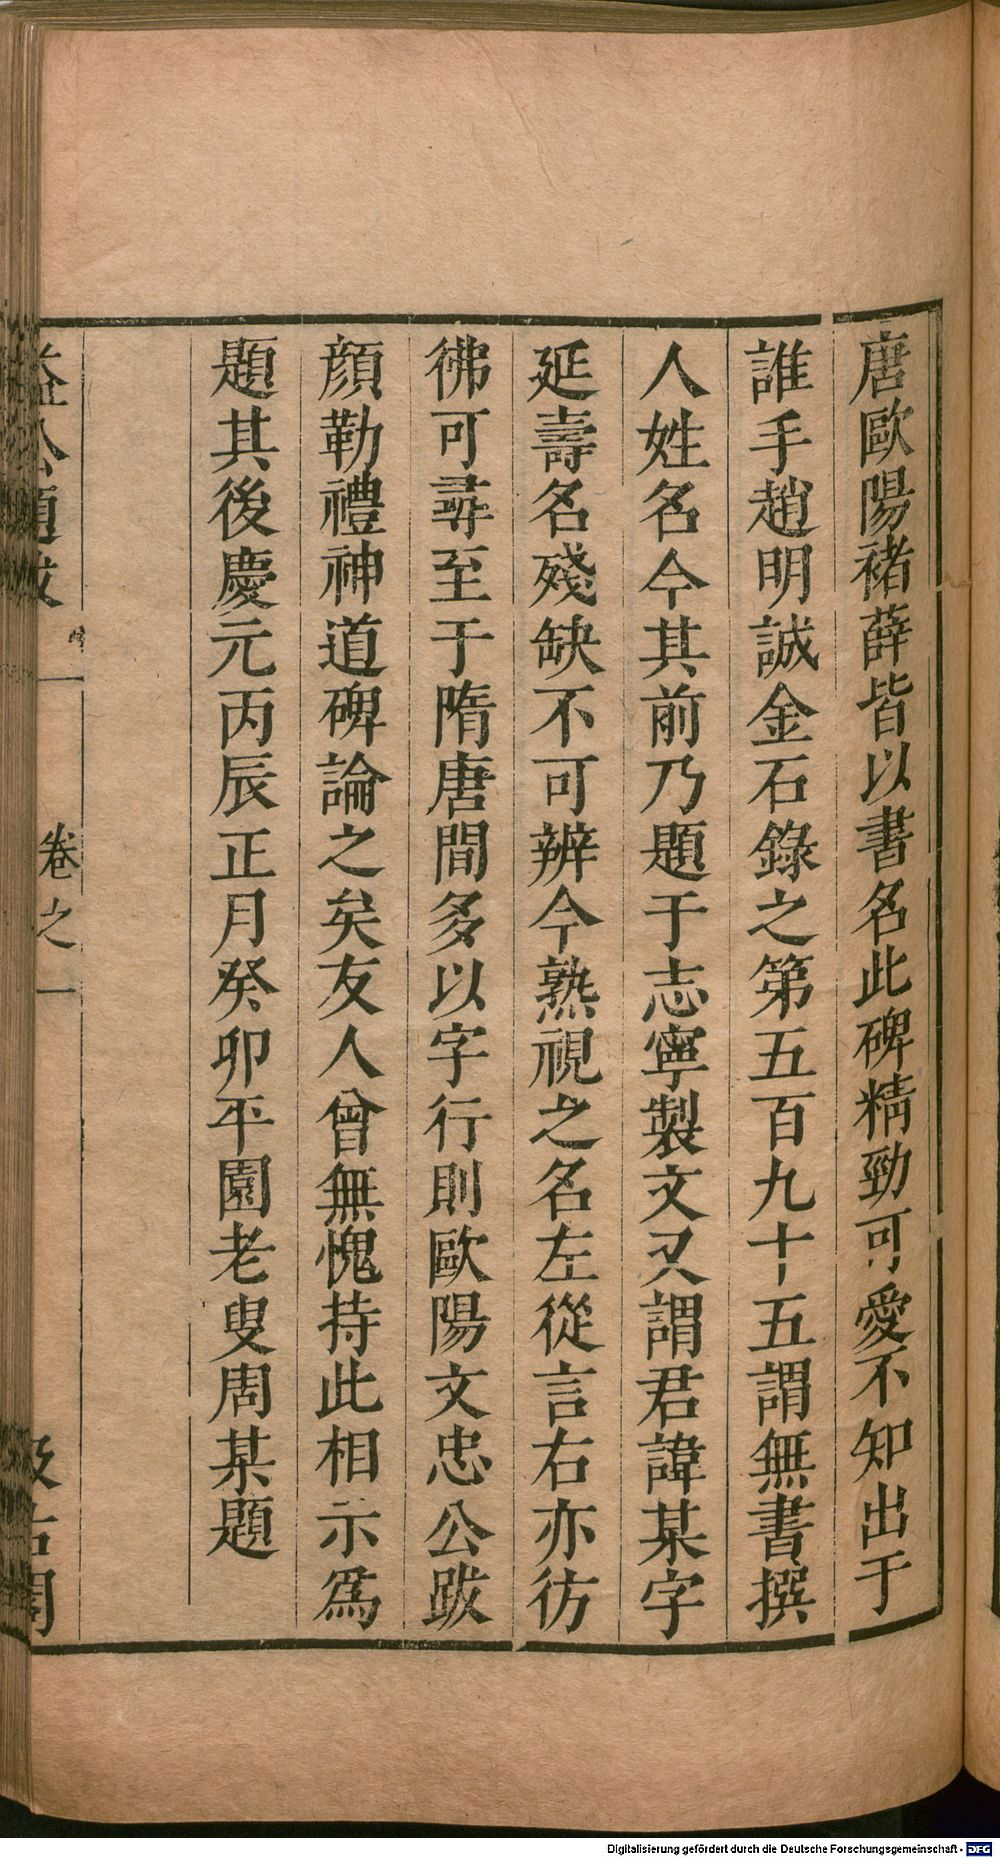 唐歐陽褚薛皆以書名此碑精勁可愛不知出于
誰手趙明誠金石錄之第五百九十五謂無書撰
人姓名今其前乃題于志寧製文又謂君諱某字
延壽名殘缺不可辨今熟視之名左從言右亦彷
彿可尋至于隋唐間多以字行則歐陽文忠公跋
顏勒禮神道碑論之矣友人曾無愧持此相示爲
題其後慶元丙辰正月癸卯平園老叟周某題
益公題跋 卷之一 一 汲古閣
Digitalisierung gefördert durch die Deutsche Forschungsgemeinschaft - DFG